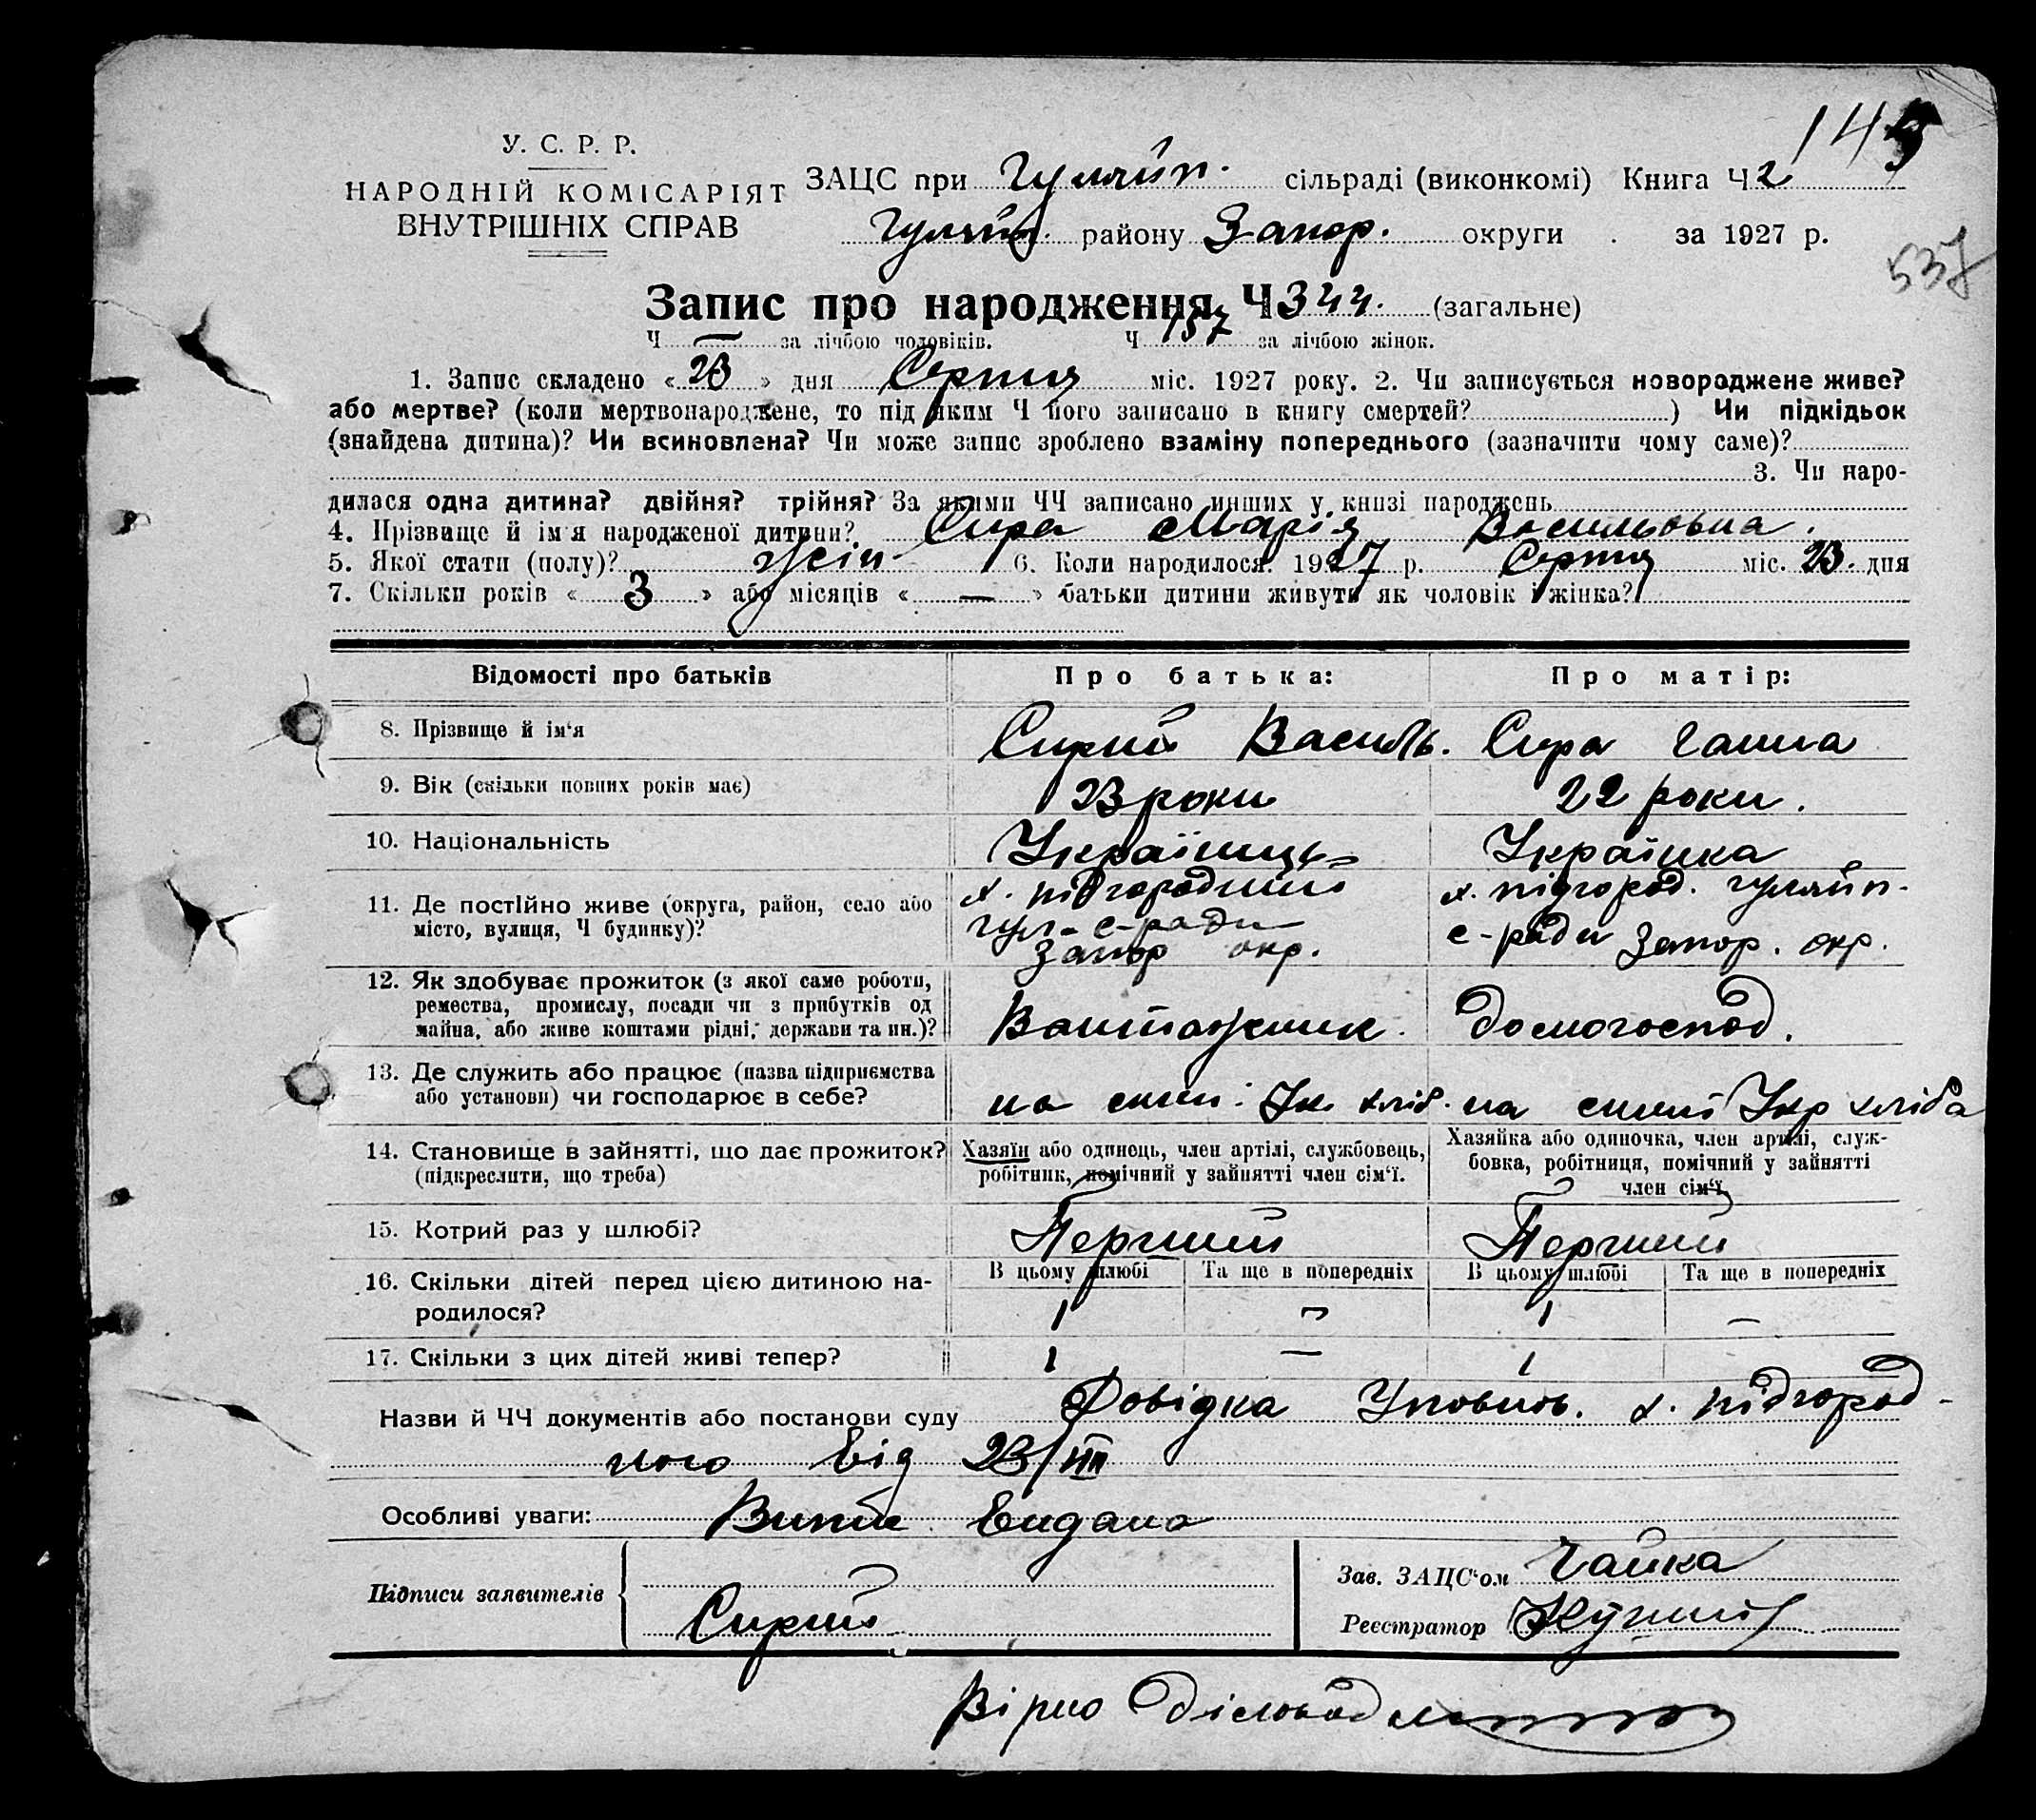 145
У. С. Р. Р.
НАРОДНІЙ КОМІСАРІЯТ
ВНУТРІШНІХ СПРАВ
ЗАЦС при Гуляйп. сільраді (виконкомі) Книга Ч 2
Гуляйп. району Запор. округи за 1927 р.
537
Запис про народження Ч 344. (загальне)
Ч — за лічбою чоловіків. Ч 157 за лічбою жінок.
1. Запис складено « 23 » дня Серпня міс. 1927 року. 2. Чи записується новороджене живе?
або мертве? (коли мертвонароджене, то під яким Ч його записано в книгу смертей? ) Чи підкідьок
(знайдена дитина)? Чи всиновлена? Чи може запис зроблено взаміну попереднього (зазначити чому саме)?
3. Чи наро-
дилася одна дитина? двійня? трійня? За якими ЧЧ записано инших у книзі народжень
4. Прізвище й ім'я народженої дитини? Сира Марія Васильовна.
5. Якої стати (полу)? жін. 6. Коли народилося: 1927 р. Серпня міс. 23. дня
7. Скільки років « 3 » або місяців « — » батьки дитини живуть як чоловік і жінка?
Відомості про батьків Про батька: Про матір:
8. Прізвище й ім'я Сирий Василь. Сира Ганна
9. Вік (скільки повних років має) 23 роки 22 роки.
10. Національність Українець Українка
11. Де постійно живе (округа, район, село або
місто, вулиця, Ч будинку)?
х. підгородний
гул- с-ради
Запор окр.
х. підгород. гуляйп-
с-ради Запор. окр.
12. Як здобуває прожиток (з якої саме роботи,
ремества, промислу, посади чи з прибутків од
майна, або живе коштами рідні, держави та ин.)?
Вантажник. Домогоспод.
13. Де служить або працює (назва підприємства
або установи) чи господарює в себе?
на сипі. Ук. хліб. на сиппі Укр хліба
14. Становище в зайнятті, що дає прожиток?
(підкреслити, що треба)
Хазяїн або одинець, член артілі, службовець,
робітник, помічний у зайнятті член сім'ї.
Хазяйка або одиночка, член артілі, служ-
бовка, робітниця, помічний у зайнятті
член сім'ї.
15. Котрий раз у шлюбі? Перший Перший
16. Скільки дітей перед цією дитиною на-
родилося?
В цьому шлюбі Та ще в попередніх В цьому шлюбі Та ще в попередніх
1 — 1 —
17. Скільки з цих дітей живі тепер? 1 — 1
Назви й ЧЧ документів або постанови суду Довідка Уповнов. х. підгород-
ного від 23/VIII
Особливі уваги: Випис видана
Підписи заявителів
Сирий
Зав. ЗАЦС'ом Чайка
Реєстратор
Вірно Діловод